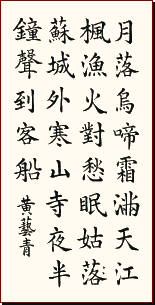 月落烏啼霜滿天江
楓漁火對愁眠姑落
蘇城外寒山寺夜半
鐘聲到客船
黃藝青